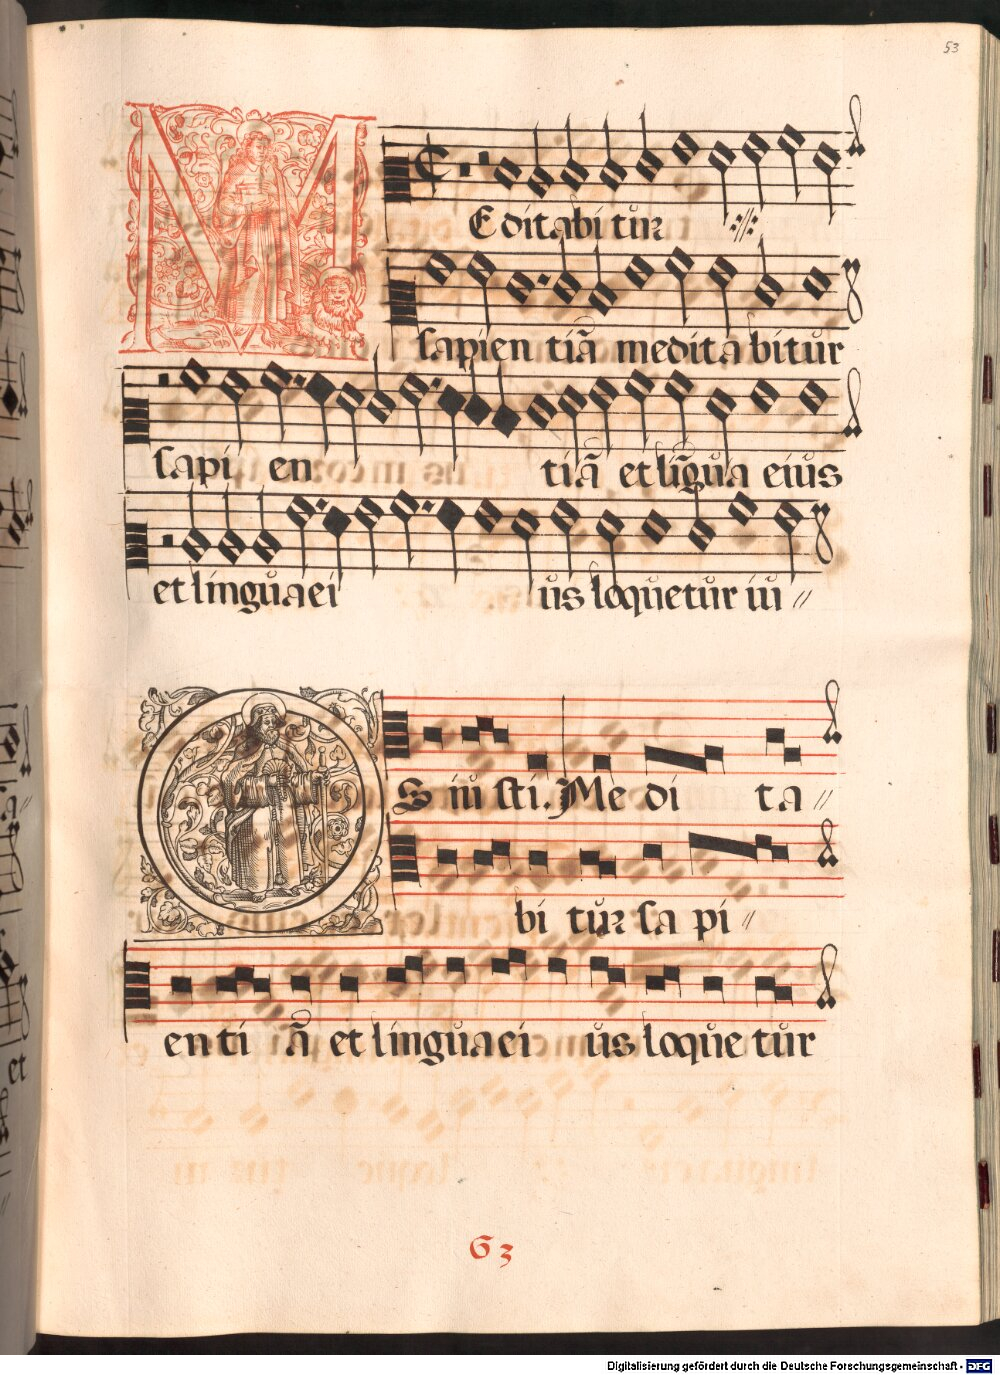 53
MEditabi tur
sapien tiā meditabitur
sapi en tiā et līgua eius
et lingua ei us loquetur iu //
OS iu sti. Me di ta //
bi tur sa pi //
en ti ā et lingua ei us loque tur
G 3
Digitalisierung gefördert durch die Deutsche Forschungsgemeinschaft - DFG